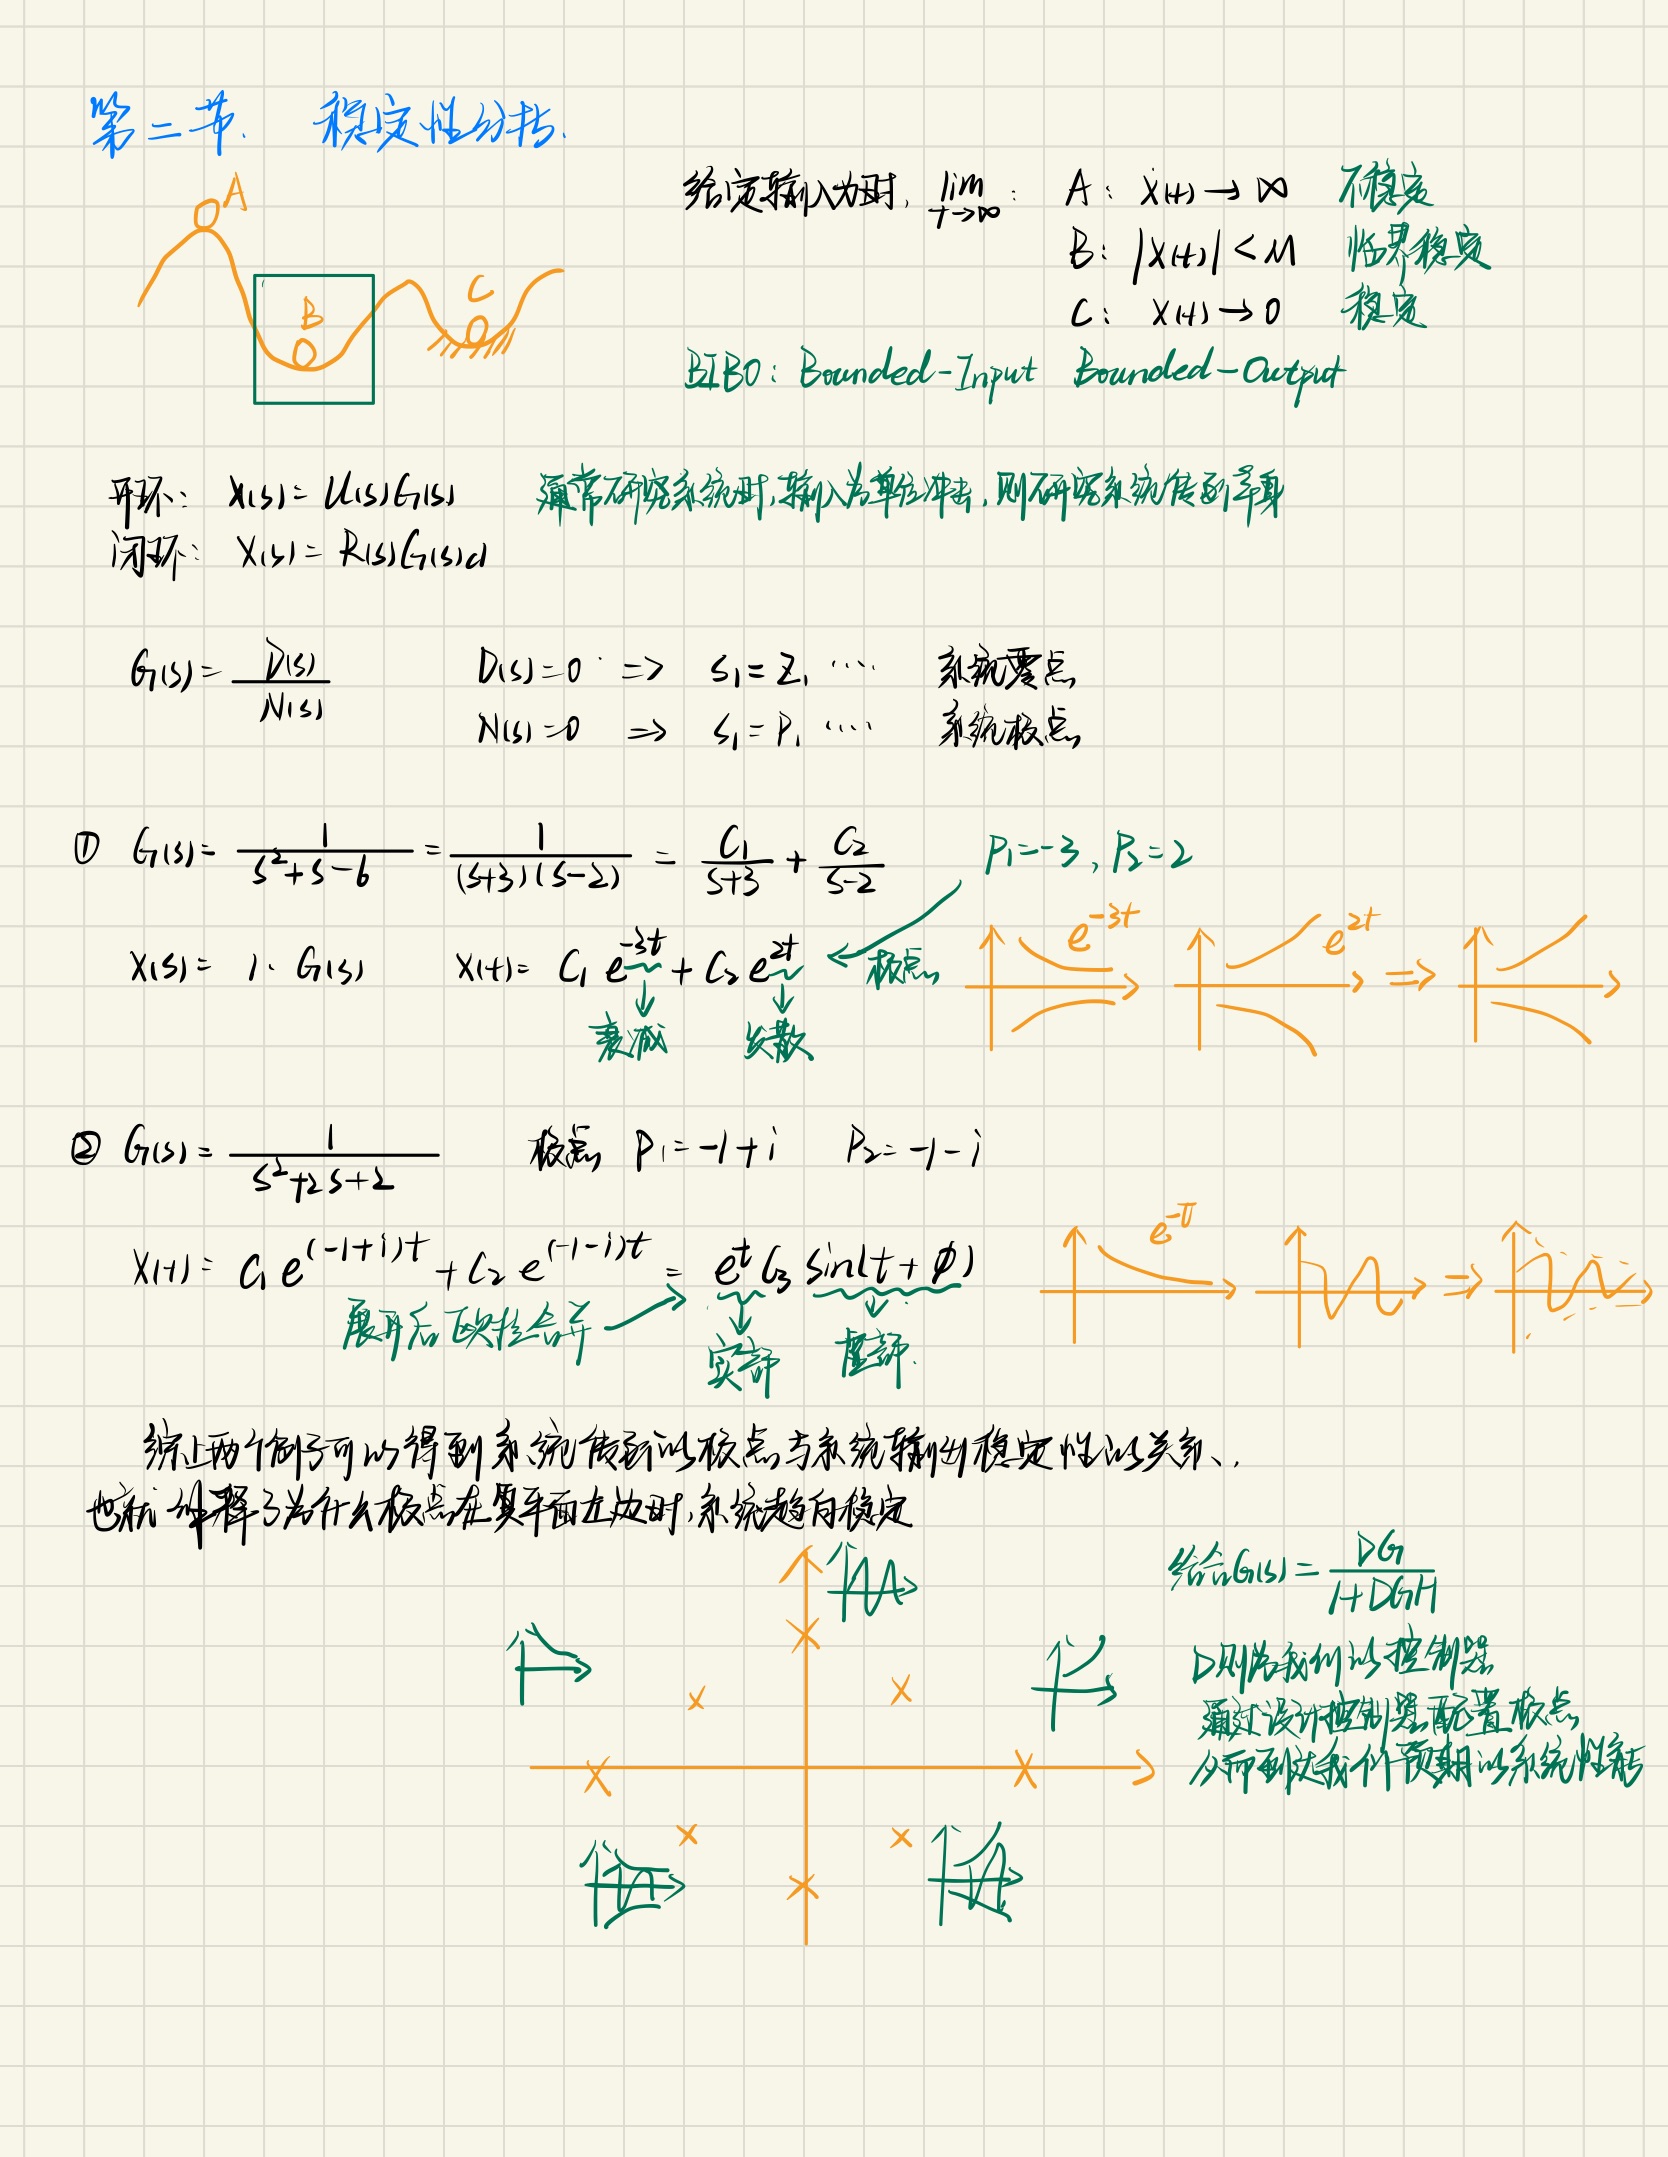 第二节. 稳定性分析.
A
B
C
给定输入为0时, lim t→∞ : A: x(t) → ∞ 不稳定
B: |x(t)| < M 临界稳定
C: x(t) → 0 稳定
BIBO: Bounded-Input Bounded-Output
开环: X(s) = U(s)G(s) 通常研究系统时,输入为单位冲击,则研究系统传函本身
闭环: X(s) = R(s)G(s)cl
G(s) = D(s)/N(s) D(s)=0 => s₁=Z₁ ···· 系统零点
N(s)=0 => s₁=P₁ ···· 系统极点
① G(s) = 1/(s²+s-6) = 1/((s+3)(s-2)) = C₁/(s+3) + C₂/(s-2) P₁=-3, P₂=2
X(s) = 1·G(s) x(t) = C₁e^(-3t) + C₂e^(2t) ← 极点
衰减 发散
e^(-3t) e^(2t) =>
② G(s) = 1/(s²+2s+2) 极点 P₁=-1+i P₂=-1-i
x(t) = C₁e^((-1+i)t) + C₂e^((-1-i)t) = e^t C₃ sin(t+φ)
展开后欧拉合并 → 实部 虚部.
=>
综上两个例子可以得到系统传函的极点与系统输出稳定性的关系、,
也就解释了为什么极点在复平面左边时,系统趋向稳定
结合G(s) = DG/(1+DGH)
D则为我们的控制器
通过设计控制器配置极点
从而到达我们预期的系统性能